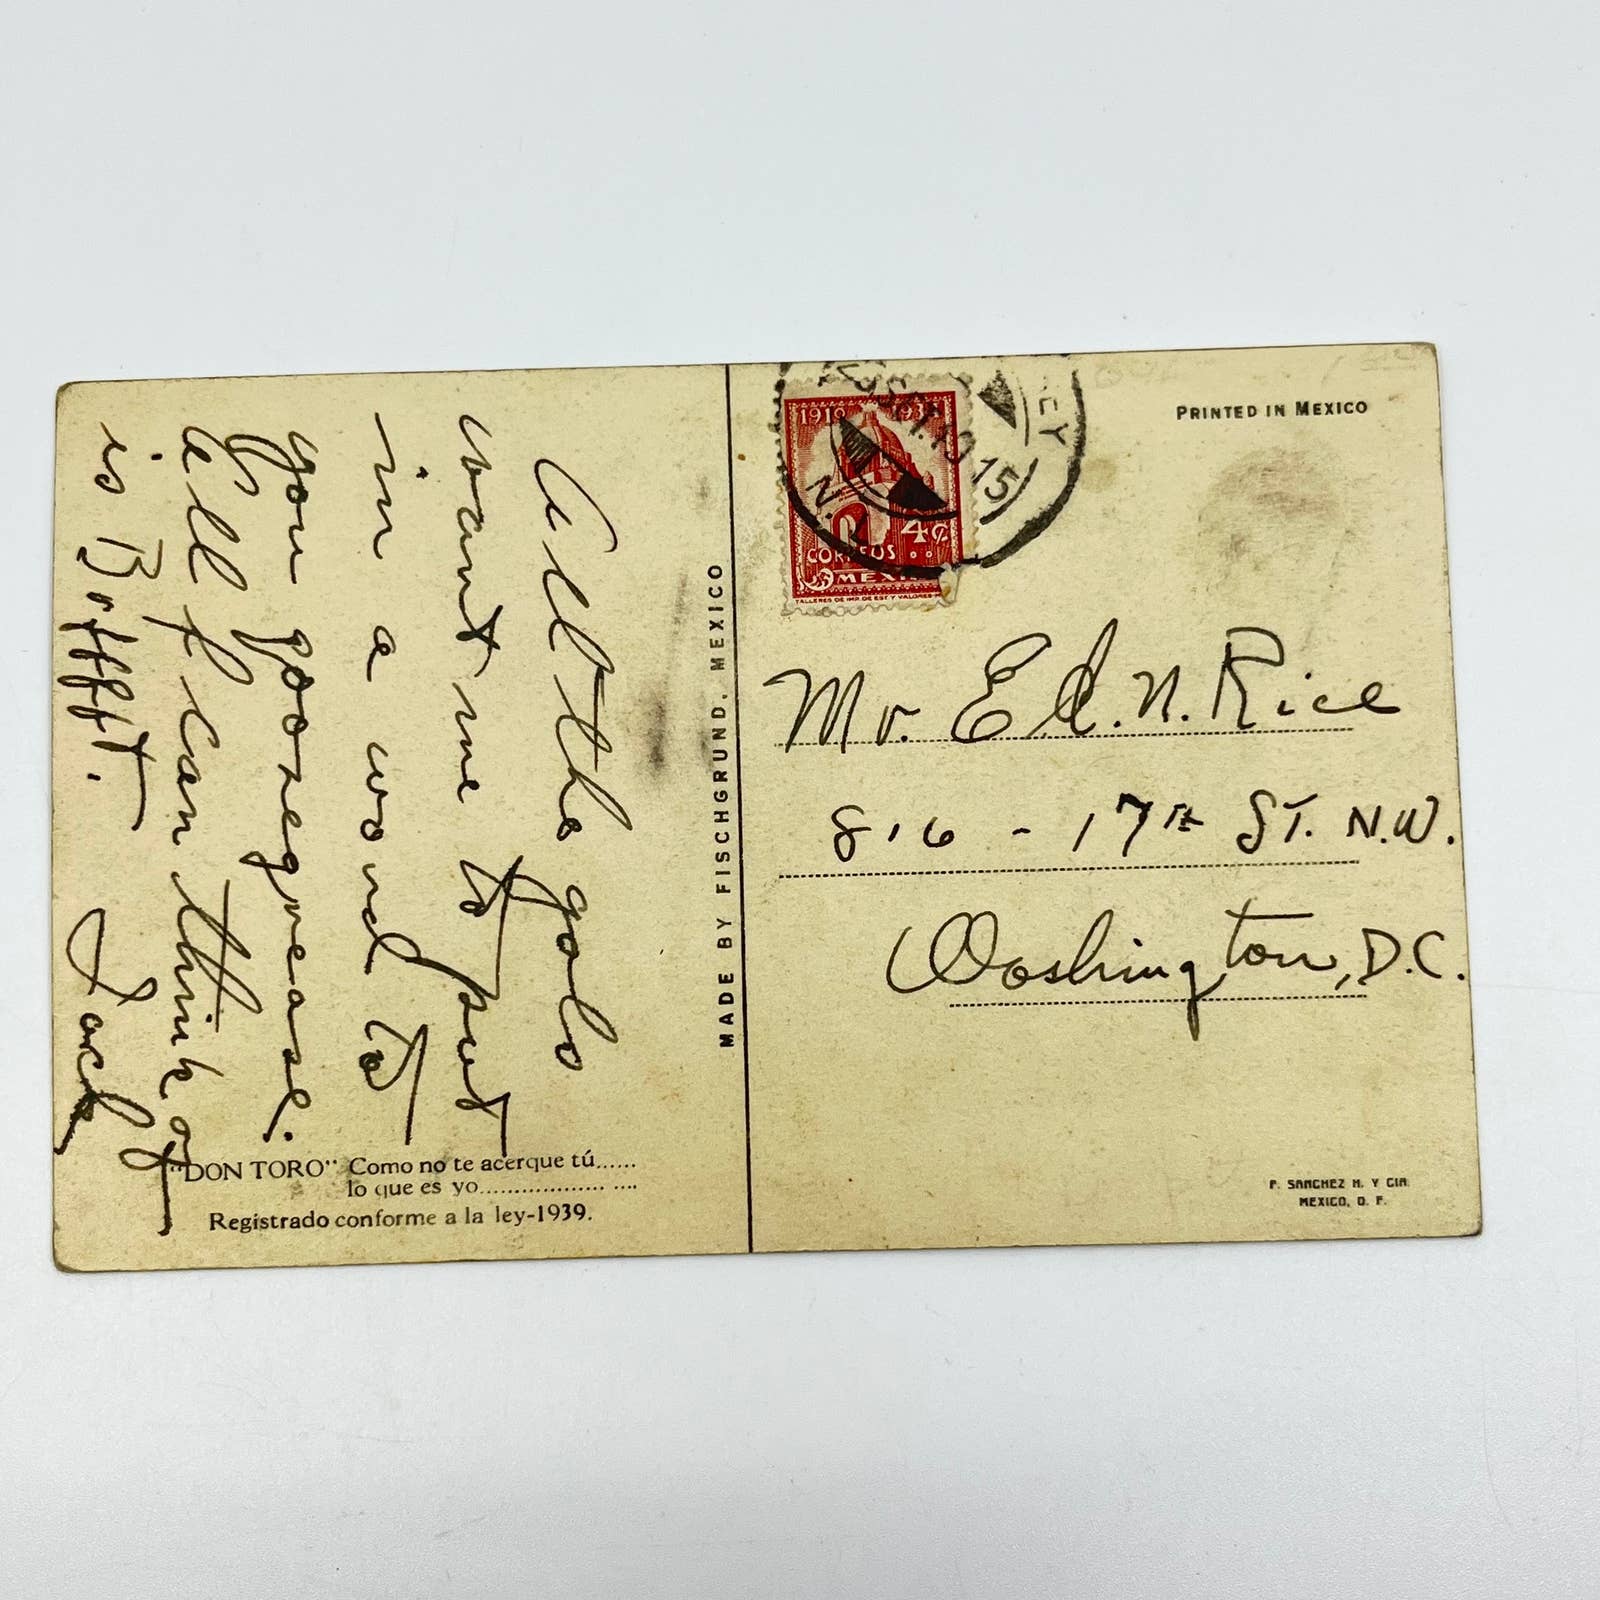 All the galo
want me to put
in a word to
you goosegrease.
All I can think of
is Brffft.
Jack
"DON TORO" Como no te acerque tú......
lo que es yo.................. ....
Registrado conforme a la ley-1939.
MADE BY FISCHGRUND, MEXICO
PRINTED IN MEXICO
1910 1935
4¢
CORREOS
MEXICO
TALLERES DE IMP. DE EST. Y VALORES
15
N. L.
Mr. Ed. N. Rice
816 - 17th ST. N.W.
Washington, D.C.
F. SANCHEZ H. Y CIA
MEXICO, D. F.